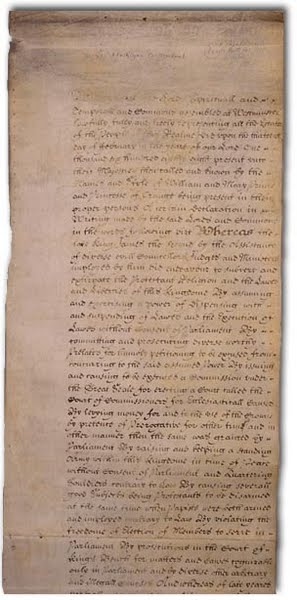 the Lords Spirituall and
Temporall and Comons assembled at Westminster
Lawfully fully and freely representing all the Estates
of the People of this Realme did upon the thirteenth
day of February in the yeare of our Lord One
thousand six hundred eighty eight present unto
their Majesties then called and knowne by the
Names and Stile of William and Mary Prince
and Princesse of Orange being present in their
proper persons A certain Declaration in
Writing made by the said Lords and Comons
in the words following viz Whereas the
late King James the second by the Assistance
of diverse evill Councellors Judges and Ministers
imployed by him did endeavor to subvert and
extirpate the Protestant Religion and the Lawes
and Liberties of this Kingdome By assuming
and exerciseing a power of dispensing with
and suspending of Lawes and the Execution of
Lawes without Consent of Parliament By
comitting and prosecuting diverse worthy
Prelates for humbly petitioning to be excused from
concurring to the said assumed Power By issueing
and causing to be executed a Comission under
the Great Seale for erecting a Court called the
Court of Commissioners for Ecclesiasticall Causes
By levying money for and to the use of the Crowne
by pretence of Prerogative for other time and in
other manner then the same was granted by
Parliament By raising and keeping a standing
Army within this Kingdome in time of Peace
without Consent of Parliament and quartering
Souldiers contrary to Law By causing severall
good Subjects being Protestants to be disarmed
at the same time when Papists were both armed
and imployed contrary to Law By violating the
freedome of Election of Members to serve in
Parliament By prosecutions in the Court of
Kings Bench for matters and causes cognizable
onely in Parliament and by diverse other arbitrary
and illegall courses And whereas of late yeares